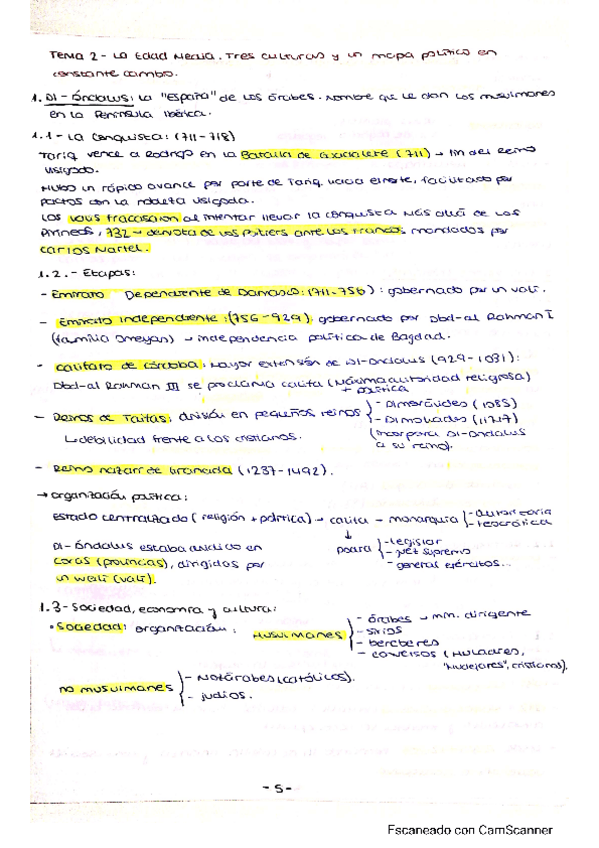 Tema 2 - La Edad Media. Tres culturas y un mapa político en
constante cambio.
1. Al-Ándalus: la "España" de los árabes. Nombre que le dan los musulmanes
en la Península Ibérica.
1.1 - La conquista: (711-718)
Tariq vence a Rodrigo en la Batalla de Guadalete (711) → fin del Reino
visigodo.
Hubo un rápido avance por parte de Tariq hacia el norte, facilitado por
pactos con la nobleza visigoda.
Los valís fracasaron al intentar llevar la conquista más allá de los
Pirineos, 732 → derrota de los Poitiers ante los francos mandados por
Carlos Martel.
1.2.- Etapas:
- Emirato Dependiente de Damasco: (711-756): gobernado por un valí.
- Emirato independiente: (756-929): gobernado por Abd-al Rahman I
(familia Omeyan) → independencia política de Bagdad.
- Califato de Córdoba: Mayor extensión de Al-Ándalus (929-1031):
Abd-al Rahman III se proclama califa (Máxima autoridad religiosa)
+ política
- Reinos de Taifas: división en pequeños reinos - Almorávides (1085)
- Almohades
↳ debilidad frente a los cristianos. (Incorpora Al-Ándalus
a su reino).
- Reino nazarí de Granada (1237-1492).
→ organización política:
Estado centralizado (religión + política) → califa - monarquía - autoritaria
- teocrática
↓
Al-Ándalus estaba dividido en podía - legislar
coras (provincias), dirigidos por - juez supremo
un walí (valí). - general ejércitos...
1.3 - Sociedad, economía y cultura:
• Sociedad: organización: Musulmanes - árabes → min. dirigente
- sirios
- bereberes
- conversos (Muladíes,
"Mudéjares", cristianos).
no musulmanes - Mozárabes (católicos).
- judíos.
- 5 -
Escaneado con CamScanner